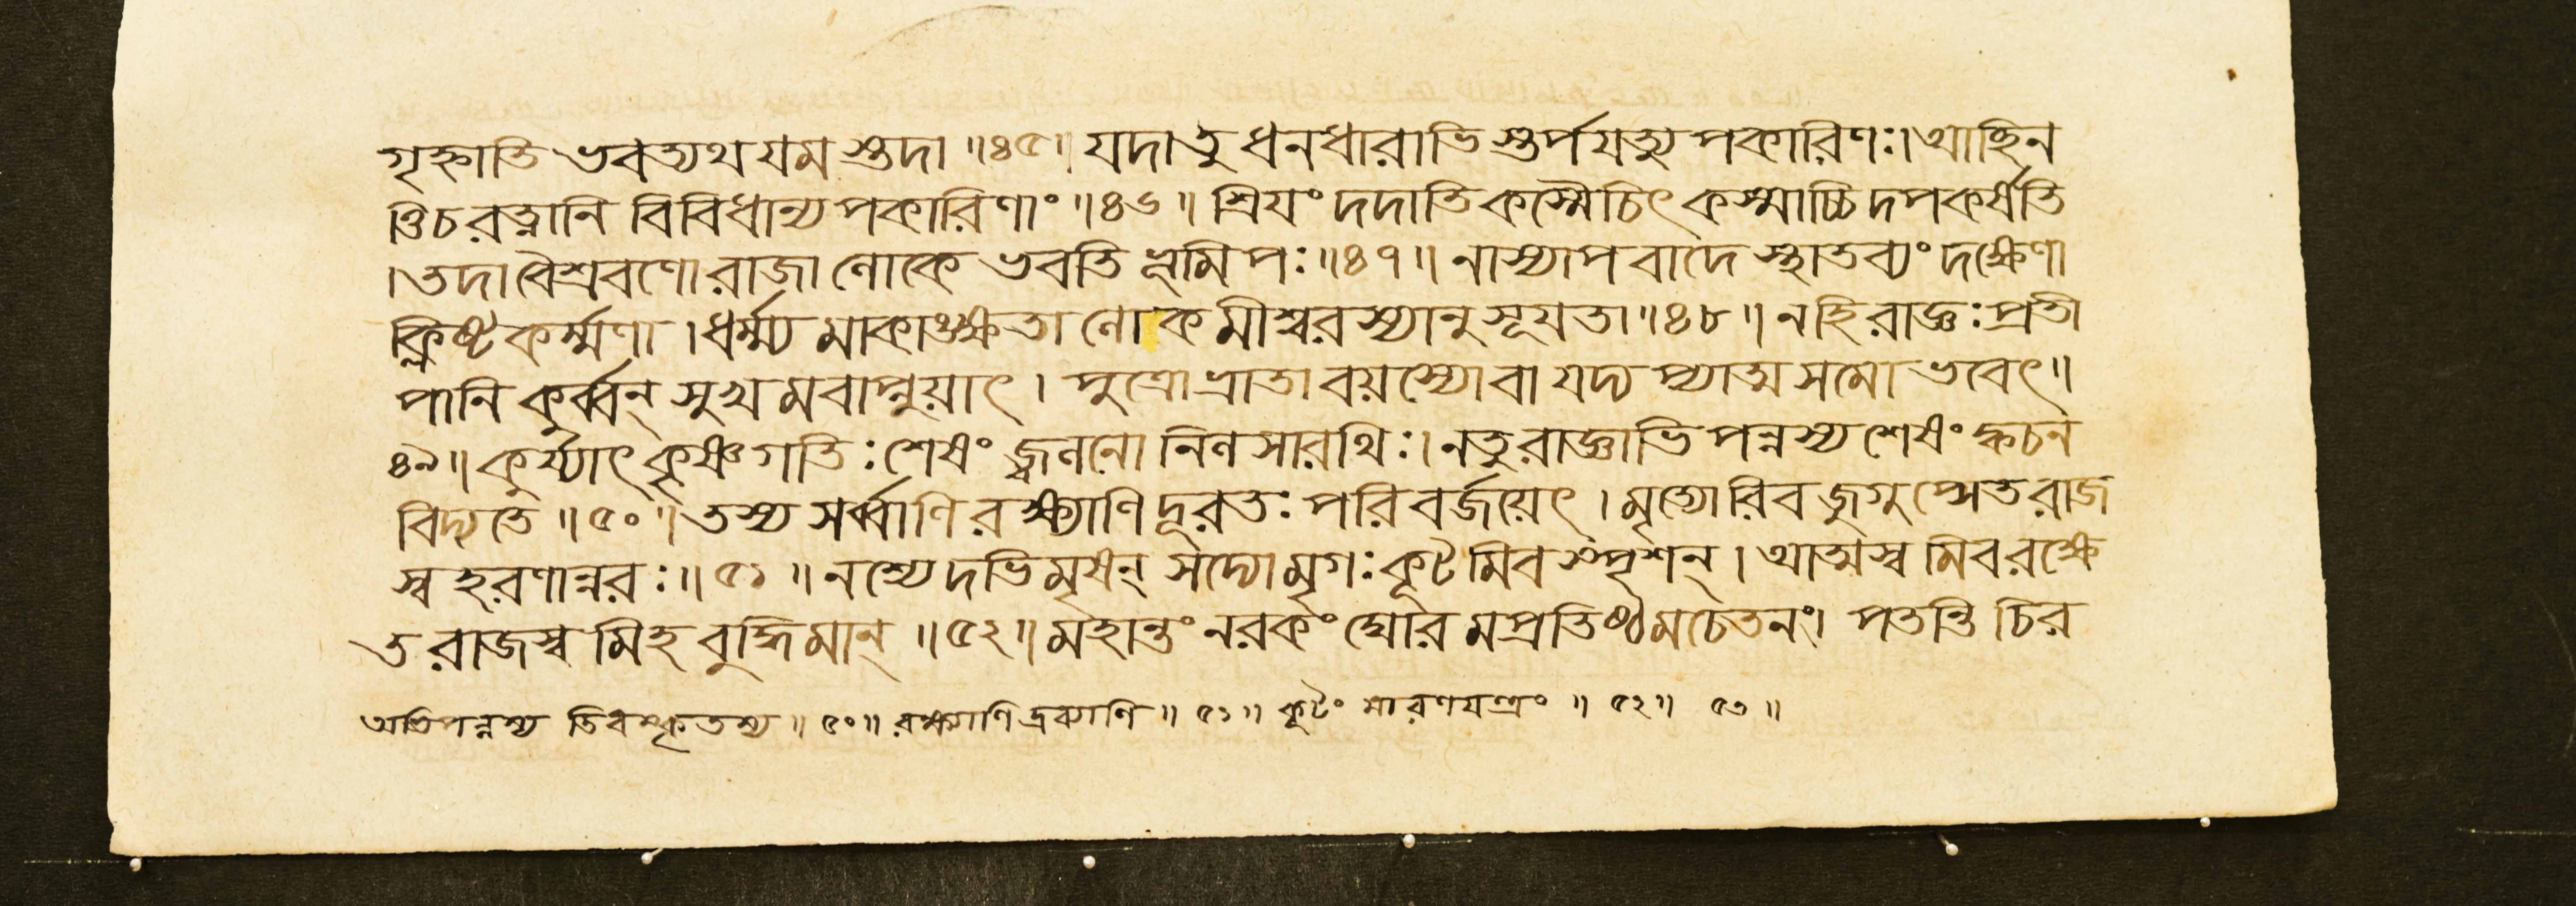 গৃহ্নাতি ভবত্যথ যমস্তদা ॥৪৫॥ যদা তু ধনধারাভিস্তর্পযত্যুপকারিণঃ। আচ্ছিন
ত্তি চ রত্নানি বিবিধান্যপকারিণাং ॥৪৬॥ শ্রিযং দদাতি কস্মৈচিৎ কস্মাচ্চিদপকর্ষতি
। তদা বৈশ্রবণো রাজা লোকে ভবতি ভূমিপঃ ॥৪৭॥ নাস্যাপবাদে স্থাতব্যং দক্ষেণা
ক্লিষ্টকর্ম্মণা । ধর্ম্ম্যমাকাঙ্ক্ষতা লোকমীশ্বরস্যানুসূযতা ॥৪৮॥ ন হি রাজ্ঞঃ প্রতী
পানি কুর্ব্বন্ সুখমবাপ্নুয়াৎ । পুত্রো ভ্রাতা বয়স্যো বা যদ্যপ্যাত্মসমো ভবেৎ ॥
৪৯॥ কুর্য্যাৎ কৃষ্ণগতিঃ শেষং জ্বলনো নিলসারথিঃ। ন তু রাজ্ঞাভিপন্নস্য শেষং ক্বচন
বিদ্যতে ॥৫০॥ তস্য সর্ব্বাণি রক্ষ্যাণি দূরতঃ পরিবর্জয়েৎ । মৃত্যোরিব জুগুপ্সেত রাজ
স্বহরণান্নরঃ ॥ ৫১ ॥ নশ্যেদভিমৃষন্ সদ্যো মৃগঃ কূটমিব স্পৃশন্ । আত্মস্বমিব রক্ষে
ত রাজস্বমিহ বুদ্ধিমান্ ॥৫২॥ মহান্তং নরকং ঘোরমপ্রতিষ্ঠমচেতনং। পতন্তি চির
অভিপন্নস্য তিরস্কৃতস্য ॥ ৫০॥ রক্ষ্যাণি দ্রব্যাণি ॥ ৫১॥ কূটং মারণযন্ত্রং ॥ ৫২॥ ৫৩ ॥